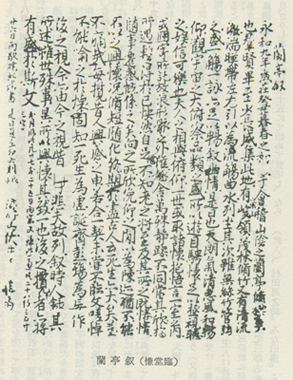 蘭亭叙
永和九年歲在癸丑暮春之初會于會稽山陰之蘭亭脩禊事
也羣賢畢至少長咸集此地有崇山峻領茂林脩竹又有清流
激湍暎帶左右引以為流觴曲水列坐其次雖無絲竹管弦
之盛一觴一詠亦足以暢叙幽情是日也天朗氣清惠風和暢
仰觀宇宙之大俯察品類之盛所以遊目騁懷足以極視聽
之娛信可樂也夫人之相與俯仰一世或取諸懷抱悟言一室之內
或因寄所託放浪形骸之外雖趣舍萬殊靜躁不同當其欣於
所遇蹔得於己快然自足不知老之將至及其所之既惓情
隨事遷感慨係之矣向之所欣俛仰之間以為陳迹猶不能
不以之興懷況脩短隨化終期於盡古人云死生亦大矣豈
不痛哉每攬昔人興感之由若合一契未嘗不臨文嗟悼
不能喻之於懷固知一死生為虛誕齊彭殤為妄作
後之視今亦由今之視昔悲夫故列叙時人錄其
所述雖世殊事異所以興懷其致一也後之攬者亦將
有感於斯文
蘭亭叙